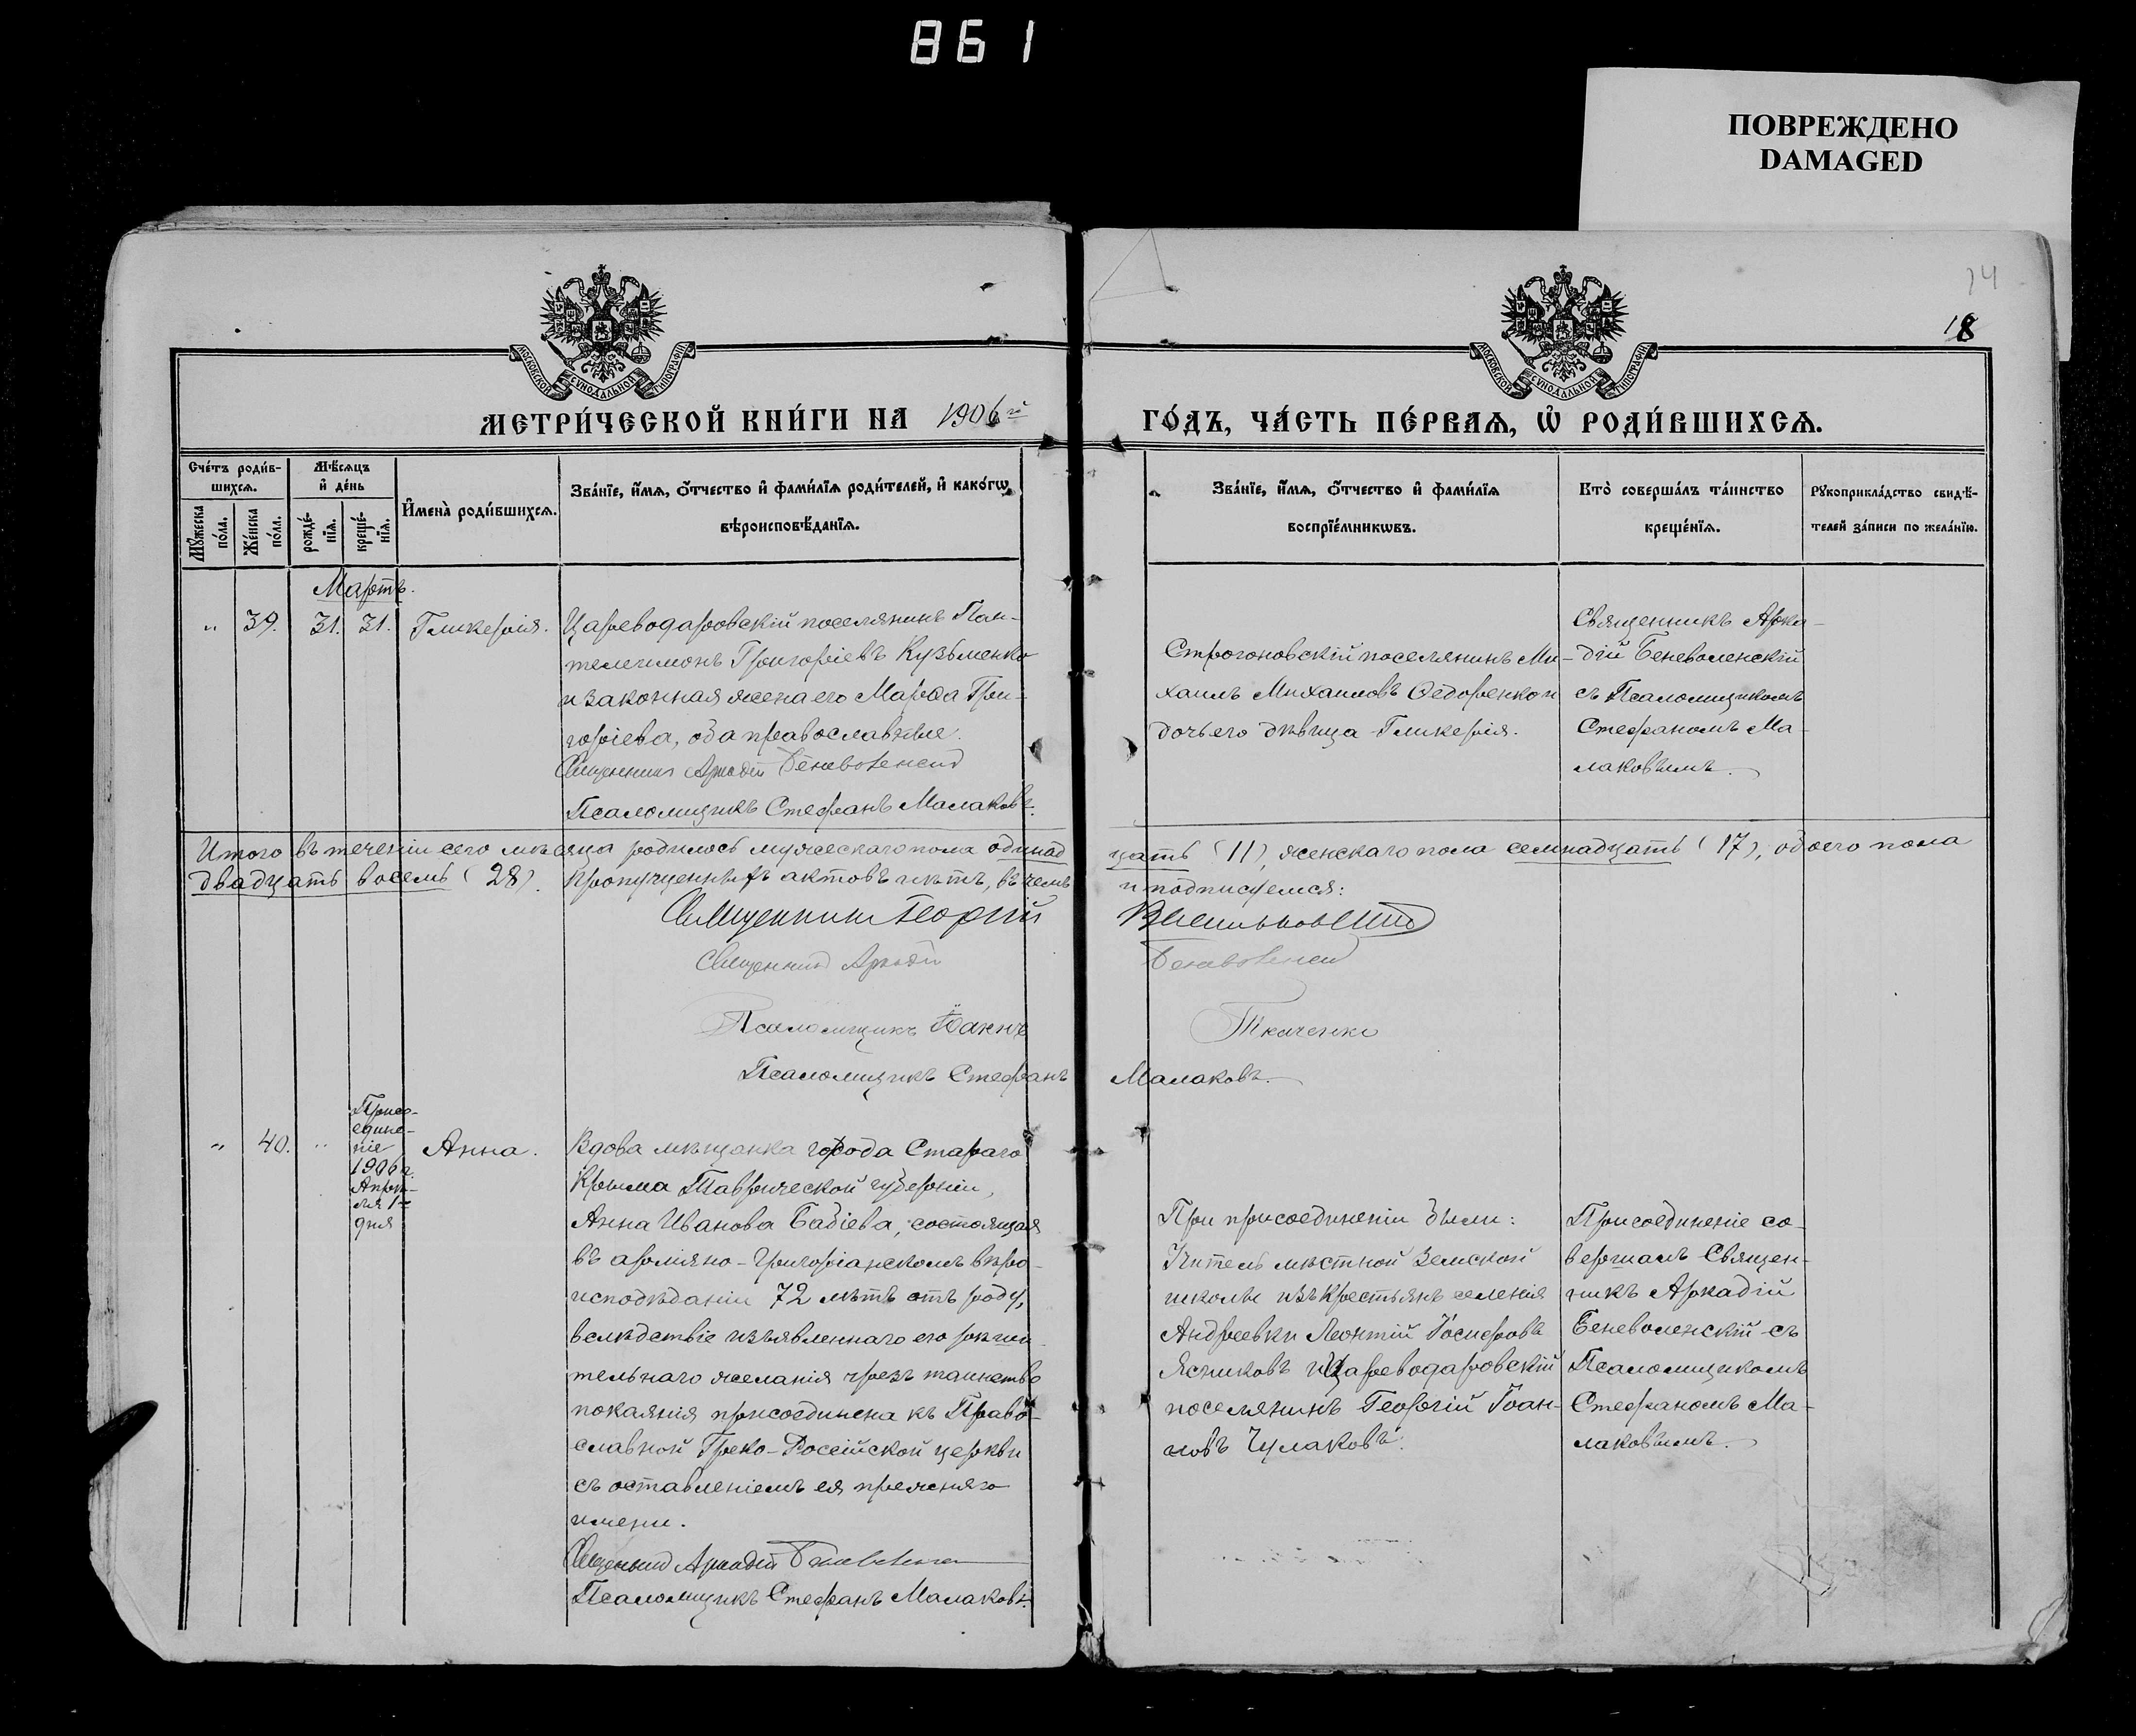 861
ПОВРЕЖДЕНО
DAMAGED
14
18
МОСКОВСКОЙ СѴНОДАЛЬНОЙ ТИПОГРАФІИ
МОСКОВСКОЙ СѴНОДАЛЬНОЙ ТИПОГРАФІИ
МЕТРИ́ЧЕСКОЙ КНИ́ГИ НА 1906 й
ГО́ДЪ, ЧА́СТЬ ПЕ́РВАѦ, Ѡ҆ РОДИ́ВШИХСѦ.
Сче́тъ роди́в-
шихсѧ.
Мꙋ́жеска
по́ла.
Же́нска
по́ла.
Мѣ́сѧцъ
и҆ де́нь
рожде́-
нїѧ.
креще́-
нїѧ.
И҆мена̀ роди́вшихсѧ.
Зва́нїе, и҆́мѧ, ѻ҆́тчество и҆ фами́лїѧ роди́телей, и҆ како́гѡ
вѣроисповѣ́данїѧ.
Зва́нїе, и҆́мѧ, ѻ҆́тчество и҆ фами́лїѧ
воспрїе́мникѡвъ.
Кто̀ соверша́лъ та́инство
креще́нїѧ.
Рꙋкоприкла́дство свидѣ́-
телей за́писи по жела́нїю.
Мартъ.
" 39. 31. 31. Гликерія.
Цареводаровскій поселянинъ Пан-
телеимонъ Григоріевъ Кузьменко
и законная жена его Марѳа Гри-
горіева, оба православные.
Священникъ Аркадій Беневоленскій
Псаломщикъ Стефанъ Малаковъ.
Строгоновскій поселянинъ Ми-
хаилъ Михаиловъ Ѳедоренко и
дочь его дѣвица Гликерія.
Священникъ Арка-
дій Беневоленскій
съ Псаломщикомъ
Стефаномъ Ма-
лаковымъ.
Итого въ теченіи сего мѣсяца родилось мужескаго пола одинад
цать (11), женскаго пола семнадцать (17), обоего пола
двадцать восемь (28). Пропущенныхъ актовъ нѣтъ, въ чемъ
и подписуемся:
Священникъ Георгій
Священникъ Аркадій Беневоленскій
Псаломщикъ Ткаченко
Псаломщикъ Стефанъ Малаковъ.
" 40. "
Присо-
едине-
ніе
1906 г.
Апрѣ-
ля 1
дня
Анна.
Вдова мѣщанка города Стараго
Крыма Таврической губерніи,
Анна Иванова Бабіева, состоящая
въ армяно-григоріанскомъ вѣро-
исповѣданіи 72 лѣтъ отъ роду,
вслѣдствіе изъявленнаго ею рѣши-
тельнаго желанія чрезъ таинство
покаянія присоединена къ Право-
славной Греко-Россійской церкви
съ оставленіемъ ея прежняго
имени.
Священникъ Аркадій Беневоленскій
Псаломщикъ Стефанъ Малаковъ.
При присоединеніи были:
Учитель мѣстной Земской
школы изъ крестьянъ селенія
Андреевки Леонтій Іосифовъ
Ясниковъ и Цареводаровскій
поселянинъ Георгій Іоан-
новъ Чулаковъ.
Присоединеніе со-
вершалъ Священ-
никъ Аркадій
Беневоленскій съ
Псаломщикомъ
Стефаномъ Ма-
лаковымъ.